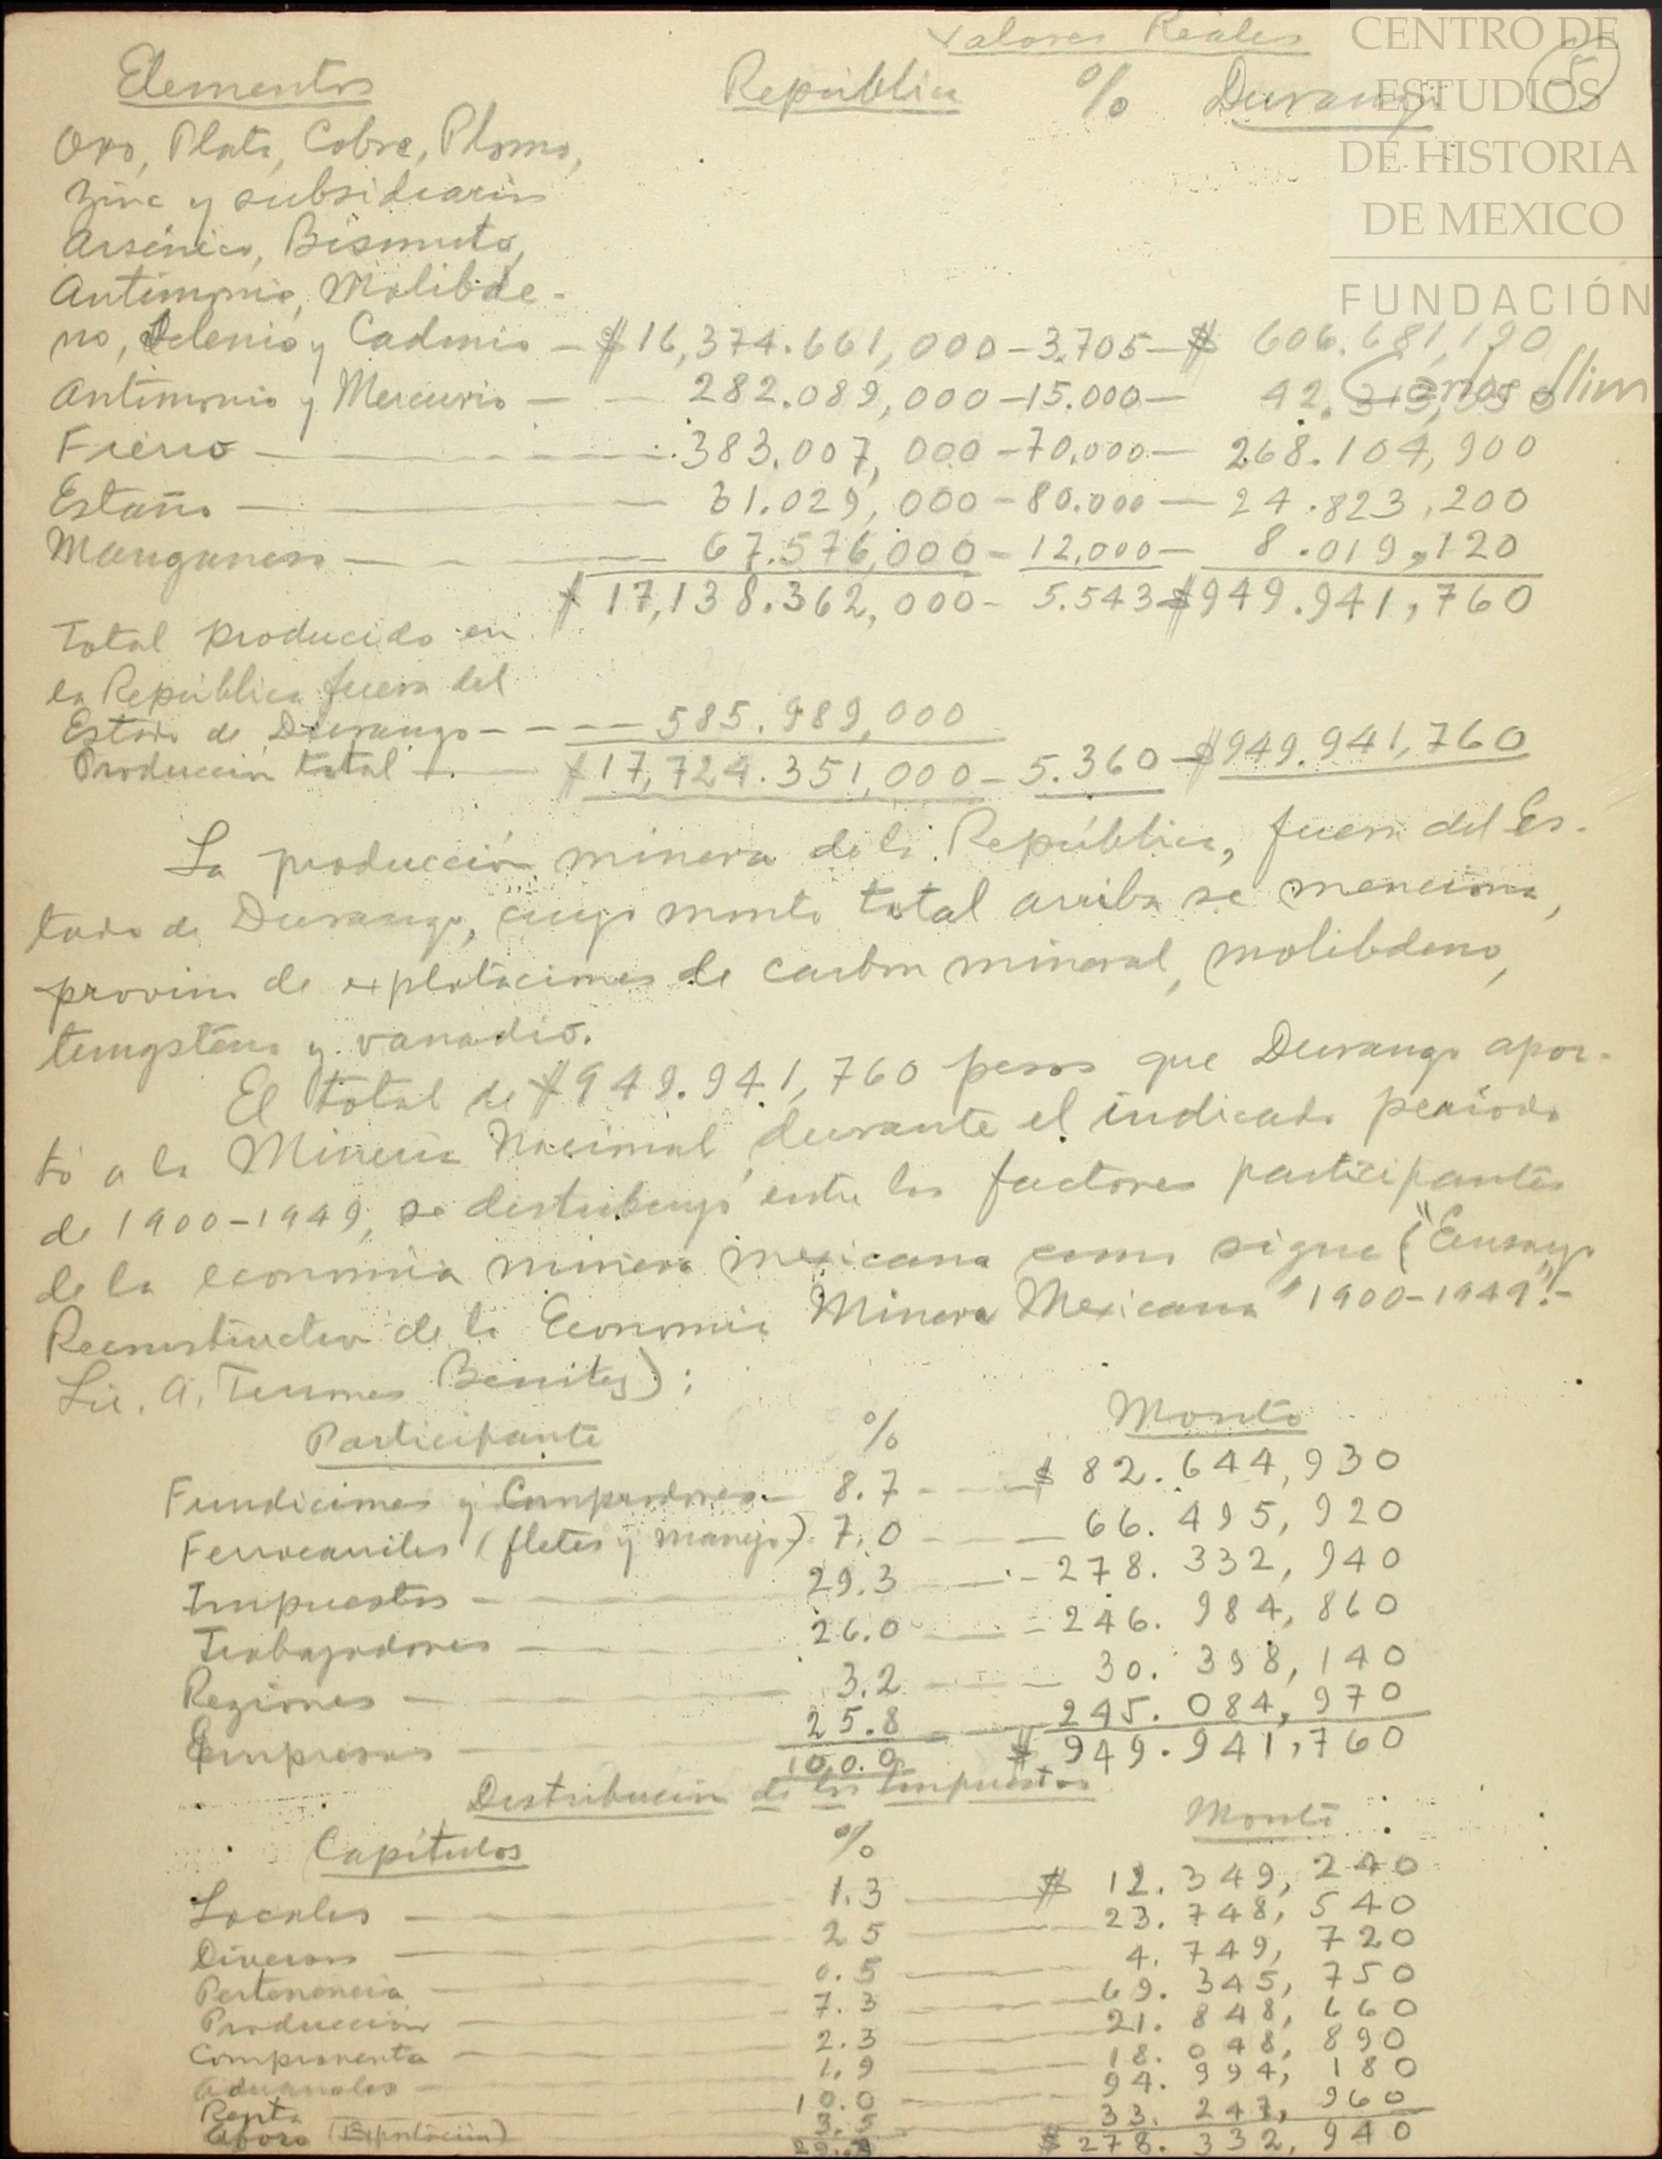 Valores Reales
CENTRO DE
ESTUDIOS
DE HISTORIA
DE MEXICO
FUNDACIÓN
Carlos Slim
5
Elementos República % Durango
Oro, Plata, Cobre, Plomo,
Zinc y subsidiarios
Arsénico, Bismuto,
Antimonio, Molibde-
no, Selenio y Cadmio — $16,374.661,000 — 3.705 — $ 606.681,190
Antimonio y Mercurio — — 282.089,000 — 15.000 — 42.313,350
Fierro — 383.007,000 — 70.000 — 268.104,900
Estaño — 31.029,000 — 80.000 — 24.823,200
Manganeso — 67.576,000 — 12,000 — 8.019,120
$17,138.362,000 - 5.543 $949.941,760
Total producido en
la República fuera del
Estado de Durango - - - - 585.989,000
Producción total — $17,724.351,000 - 5.360 - $949.941,760
La producción minera de la República, fuera del Es-
tado de Durango, cuyo monto total arriba se menciona,
provino de explotaciones de carbon mineral, molibdeno,
tungsteno y vanadio.
El total de $949.941,760 pesos que Durango apor-
tó a la Minería Nacional, durante el indicado período
de 1900-1949, se distribuyó entre los factores participantes
de la economía minera mexicana como sigue ("Ensayo
Reconstructivo de la Economía Minera Mexicana" 1900-1949".-
Lic. A. Terrones Benitez):
Participante % Monto
Fundiciones y Compradores — 8.7 — $ 82.644,930
Ferrocarriles (fletes y manejo) 7.0 — 66.495,920
Impuestos — 29.3 — 278.332,940
Trabajadores — 26.0 — 246.984,860
Regiones — 3.2 — 30.398,140
Empresas — 25.8 — 245.084,970
100.0 $ 949.941,760
Distribución de los Impuestos
Capítulos % Monto
Locales — 1.3 — $ 12.349,240
Diversos — 2 5 — 23.748,540
Pertenencia — 0.5 — 4.749,720
Producción — 7.3 — 69.345,750
Compraventa — 2.3 — 21.848,660
Aduanales — 1.9 — 18.048,890
Renta — 10.0 — 94.994,180
Aforo (Exportación) 3.5 — 33.247,960
29.3 $ 278.332,940